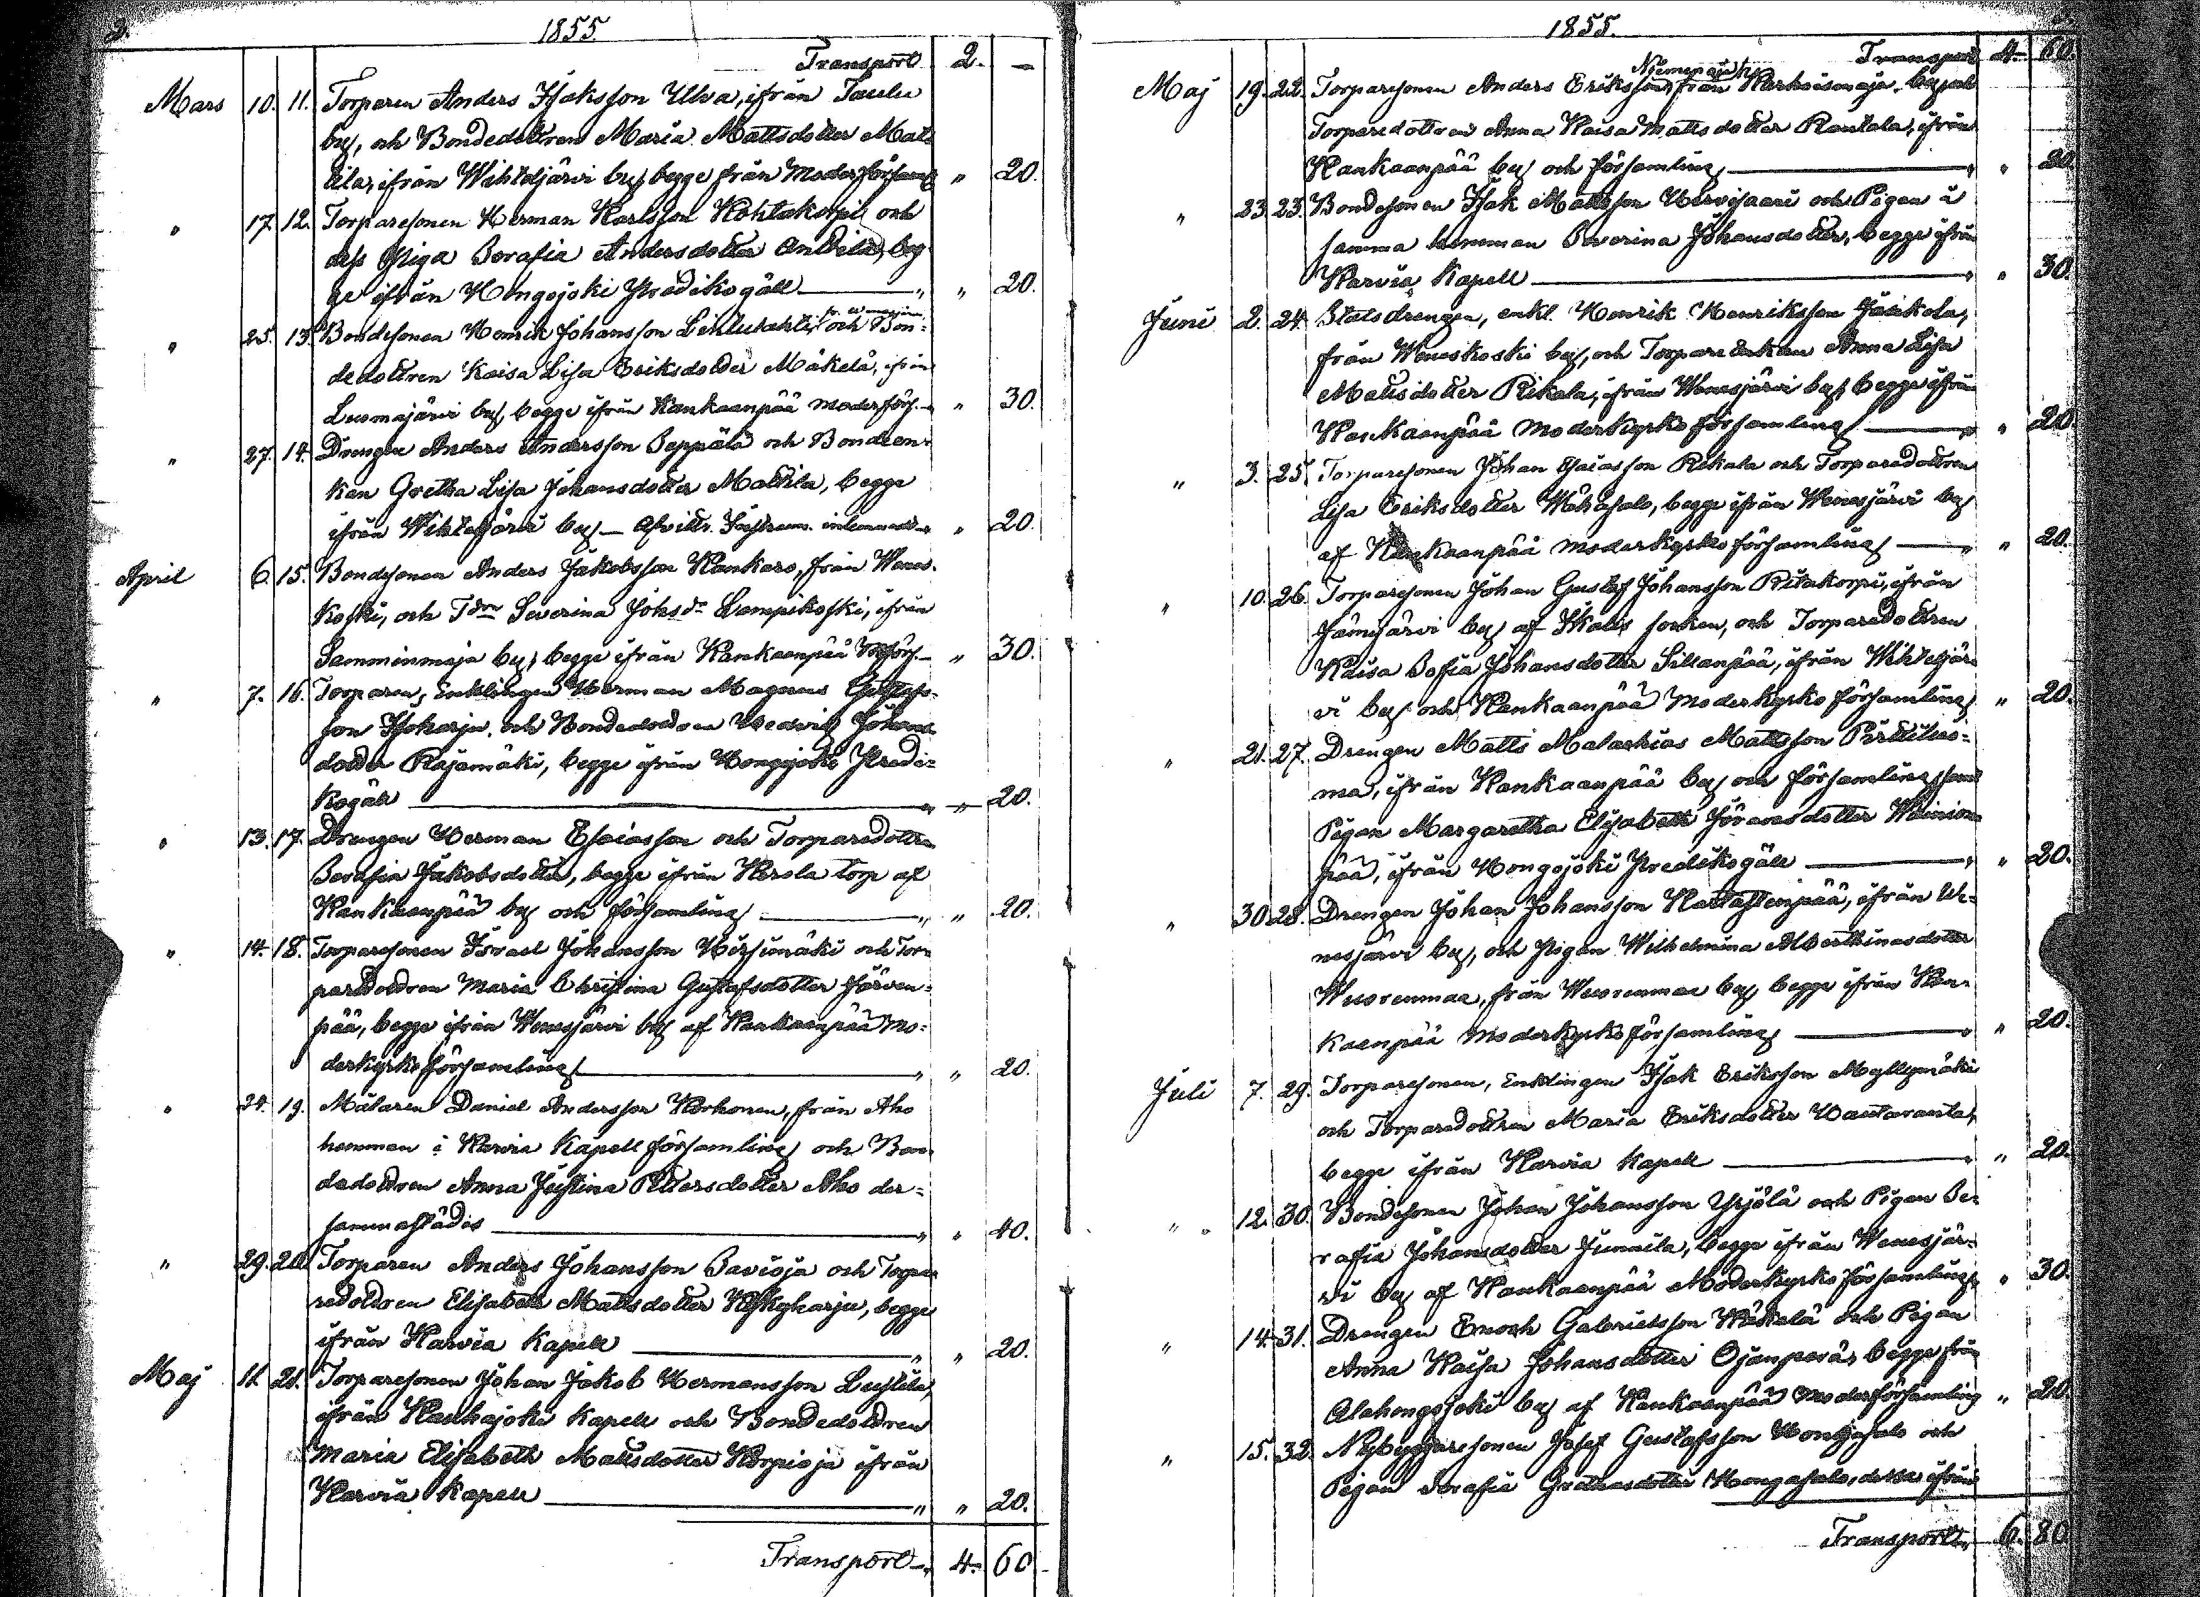 2.
1855.
Transport 2. —
Mars 10. 11. Torparen Anders Isaksson Ulva, ifrån Taulu
by, och Bondedottren Maria Mattsdotter Mat-
tila, ifrån Wihteljärvi by, begge från Moderförsaml. " 20.
" 17. 12. Torparesonen Herman Karlsson Kohtakorpi och
dess Piga Serafia Andersdotter Anttila, beg-
ge ifrån Hongojoki Predikogäll " " 20.
" 25. 13. Bondesonen Henrik Johansson Lehtilahti, och Bon-
dedottren Kaisa Lisa Eriksdotter Mäkelä, ifrån
Luomajärvi by, begge ifrån Kankaanpää Moderförs. " 30.
" 27. 14. Drengen Anders Andersson Seppälä och Bondeen-
kan Gretha Lisa Johansdotter Mattila, begge
ifrån Wihteljärvi by " 20.
April 6. 15. Bondesonen Anders Jakobsson Kankaro, från Wenes-
koski, och Tdrn Severina Johsdr Lampikoski, ifrån
Samminmaja by, begge ifrån Kankaanpää " 30.
" 7. 16. Torparen, Enklingen Herman Magnus Gustafs-
son Isokarju och Bondedottren Hedvig Johans-
dotter Rajamäki, begge ifrån Hongojoki Predi-
kogäll " " 20.
" 13. 17. Drengen Herman Esaiasson och Torparedottren
Serafia Jakobsdotter, begge ifrån Kerola torp af
Kankaanpää by och församling " " 20.
" 14. 18. Torparesonen Israel Johansson Hirsimäki och Tor-
paredottren Maria Christina Gustafsdotter Järven-
pää, begge ifrån Wenesjärvi by af Kankaanpää Mo-
derkyrkoförsamling " " 20.
" 24. 19. Målaren Daniel Andersson Korhonen, från Aho
hemman i Karvia Kapellförsamling och Bon-
dedottren Anna Justina Pettersdotter Aho der-
sammastädes " " 40.
" 29. 20. Torparen Anders Johansson Savioja och Torpa-
redottren Elisabeth Mattsdotter Kyhkyharju, begge
ifrån Karvia Kapell " " 20.
Maj 11. 21. Torparesonen Johan Jakob Hermansson Lustila,
ifrån Kauhajoki Kapell och Bondedottren
Maria Elisabeth Mattsdotter Korpioja ifrån
Karvia Kapell " " 20.
Transport 4. 60.
1855.
Transport 4. 60.
Niemenmaja by
Maj 19. 22. Torparesonen Anders Eriksson, från Karhoismaja,
Torparedottren Anna Kaisa Mattsdotter Rantala, ifrån
Kankaanpää by och församling " " 20.
" 23. 23. Bondesonen Isak Mattsson Hirvisaari och Pigan å
samma hemman Severina Johansdotter, begge ifrån
Karvia Kapell " " 30.
Juni 2. 24. Statsdrengen, enkl. Henrik Henriksson Jaakola,
från Weneskoski by, och Torpareenkan Anna Lisa
Mattsdotter Rikala, ifrån Wenesjärvi by, begge ifrån
Kankaanpää Moderkyrkoförsamling " " 20.
" 3. 25. Torparesonen Johan Esaiasson Rikala och Torparedottren
Lisa Eriksdotter Wehäsalo, begge ifrån Wenesjärvi by
af Kankaanpää Moderkyrkoförsamling " " 20.
" 10. 26. Torparesonen Johan Gustaf Johansson Ritakorpi, ifrån
Jämijärvi by af Ikalis socken, och Torparedottren
Kaisa Sofia Johansdotter Sillanpää, ifrån Wihteljär-
vi by och Kankaanpää Moderkyrkoförsamling " 20.
" 21. 27. Drengen Matts Malachias Mattsson Pirttiluo-
ma, ifrån Kankaanpää by och församling samt
Pigan Margaretha Elisabeth Göransdotter Wäinion-
pää, ifrån Hongojoki Predikogäll " " 20.
" 30. 28. Drengen Johan Johansson Hietastenpää, ifrån We-
nesjärvi by, och Pigan Wilhelmina Albertinasdotter
Wuorenmaa, från Wuorenmaa by, begge ifrån Kan-
kaanpää Moderkyrkoförsamling " " 20.
Juli 7. 29. Torparesonen, Enklingen Isak Eriksson Myllymäki
och Torparedottren Maria Eriksdotter Hautaranta,
begge ifrån Karvia Kapell " " 20.
" 12. 30. Bondesonen Johan Johansson Yrjölä och Pigan Se-
rafia Johansdotter Junnila, begge ifrån Wenesjär-
vi by af Kankaanpää Moderkyrkoförsamling " 30.
" 14. 31. Drengen Enoch Gabrielsson Wäkelä och Pigan
Anna Kaisa Johansdotter Ojanperä, begge från
Alahongojoki by af Kankaanpää Moderförsamling " 20.
" 15. 32. Nybyggaresonen Josef Gustafsson Hongasalo och
Pigan Serafia Grethasdotter Hongasalo, dessa ifrån
Transport 6. 80.